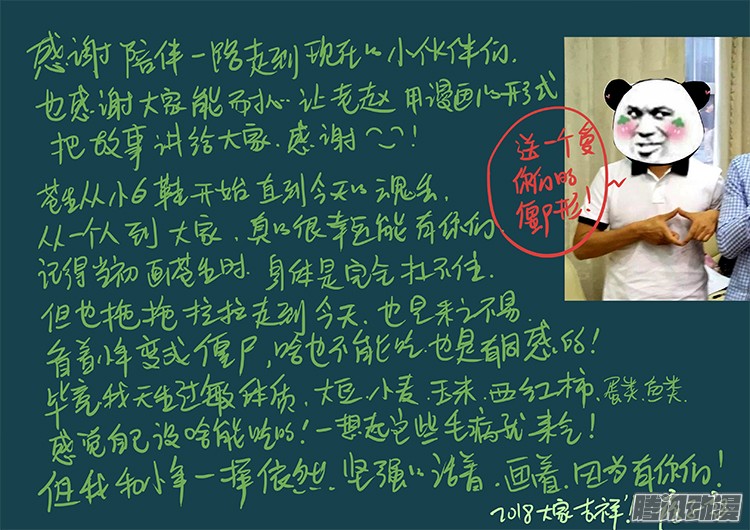 感谢陪伴一路走到现在的小伙伴们.
也感谢大家能耐心让老赵用漫画的形式
把故事讲给大家.感谢!
苍生从小6鞋开始直到今天的魂兵,
从一个人到大家,真的很幸运能有你们
记得当初画苍生时.身体是完全扛不住.
但也拖拖拉拉走到今天.也是来之不易.
看着小年变成僵尸,啥也不能吃.也是有同感的!
毕竟我天生过敏体质,大豆.小麦.玉米.西红柿.蛋类.鱼类.
感觉自己没啥能吃的!一想起这些毛病就来气!
但我和小年一样依然.坚强的活着.画着.因为有你们!
2018大家吉祥!
送一个爱
你们的
僵尸形!
腾讯动漫